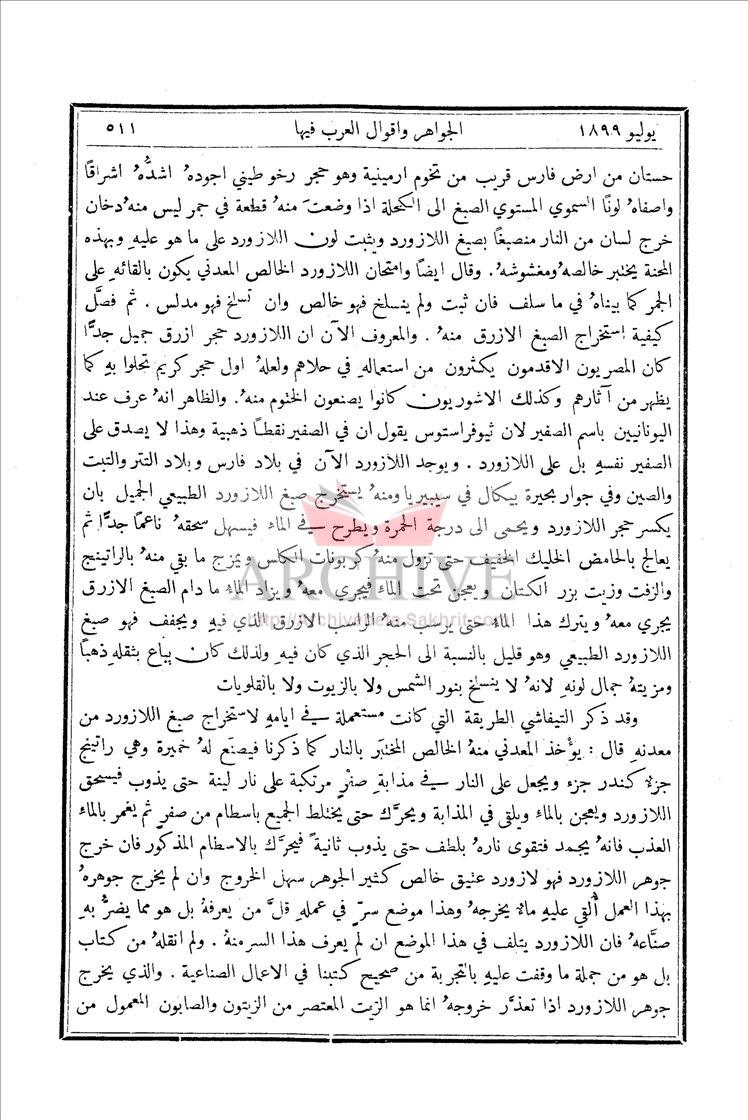 يوليو ١٨٩٩ الجواهر واقوال العرب فيها ٥١١
حستان من ارض فارس قريب من تخوم ارمينية وهو حجر رخو طيني اجوده اشدُّه اشراقًا
واصفاه لونًا السموي المستوي الصبغ الى الكحلة اذا وضعت منه قطعة في جمر ليس منه دخان
خرج لسان من النار منصبغًا بصبغ اللازورد ويثبت لون اللازورد على ما هو عليهِ وبهذه
المحنة يختبر خالصه ومغشوشه. وقال ايضًا وامتحان اللازورد الخالص المعدني يكون بالقائهِ على
الجمر كما بيناه في ما سلف فان ثبت ولم ينسلخ فهو خالص وان تسلخ فهو مدلس. ثم فصَّل
كيفية استخراج الصبغ الازرق منه. والمعروف الآن ان اللازورد حجر ازرق جميل جدًّا
كان المصريون الاقدمون يكثرون من استعماله في حلاهم ولعله اول حجر كريم تحلوا بهِ كما
يظهر من آثارهم وكذلك الاشوريون كانوا يصنعون الختوم منه. والظاهر انه عرف عند
اليونانيين باسم الصفير لان ثيوفراستوس يقول ان في الصفير نقطًا ذهبية وهذا لا يصدق على
الصفير نفسهِ بل على اللازورد. ويوجد اللازورد الآن في بلاد فارس وبلاد التتر والتبت
والصين وفي جوار بحيرة بيكال في سيبيريا ومنه يستخرج صبغ اللازورد الطبيعي الجميل بان
يكسر حجر اللازورد ويحمى الى درجة الحمرة ويطرح في الماء فيسهل سحقه ناعمًا جدًّا ثم
يعالج بالحامض الخليك الخفيف حتى تزول منه كربونات الكلس ويمزج ما بقي منه بالراتينج
والزفت وزيت بزر الكتان ويعجن تحت الماء فيجري معه ويزاد الماء ما دام الصبغ الازرق
يجري معه ويترك هذا الماء حتى يرسب منه الراسب الازرق الذي فيهِ ويجفف فهو صبغ
اللازورد الطبيعي وهو قليل بالنسبة الى الحجر الذي كان فيهِ ولذلك كان يباع بثقله ذهبًا
ومزيته جمال لونهِ لانه لا ينسلخ بنور الشمس ولا بالزيوت ولا بالقلويات
وقد ذكر التيفاشي الطريقة التي كانت مستعملة في ايامهِ لاستخراج صبغ اللازورد من
معدنهِ قال: يؤخذ المعدني منه الخالص المختبَر بالنار كما ذكرنا فيصنع له خميرة وهي راتينج
جزء كندر جزء ويجعل على النار في مذابة صفر مرتكبة على نار لينة حتى يذوب فيسحق
اللازورد ويعجن بالماء ويلقى في المذابة ويحرَّك حتى يختلط الجميع باسطام من صفر ثم يغمر بالماء
العذب فانه يجمد فتقوى ناره بلطف حتى يذوب ثانيةً فيحرَّك بالاسطام المذكور فان خرج
جوهر اللازورد فهو لازورد عتيق خالص كثير الجوهر سهل الخروج وان لم يخرج جوهره
بهذا العمل أُلقي عليهِ ماء يخرجه وهذا موضع سرٍّ في عملهِ قلَّ من يعرفه بل هو مما يضرُّ بهِ
صنَّاعه فان اللازورد يتلف في هذا الموضع ان لم يعرف هذا السر منه. ولم انقله من كتاب
بل هو من جملة ما وقفت عليهِ بالتجربة من صحيح كتبنا في الاعمال الصناعية. والذي يخرج
جوهر اللازورد اذا تعذَّر خروجه انما هو الزيت المعتصر من الزيتون والصابون المعمول من
ARCHIVE